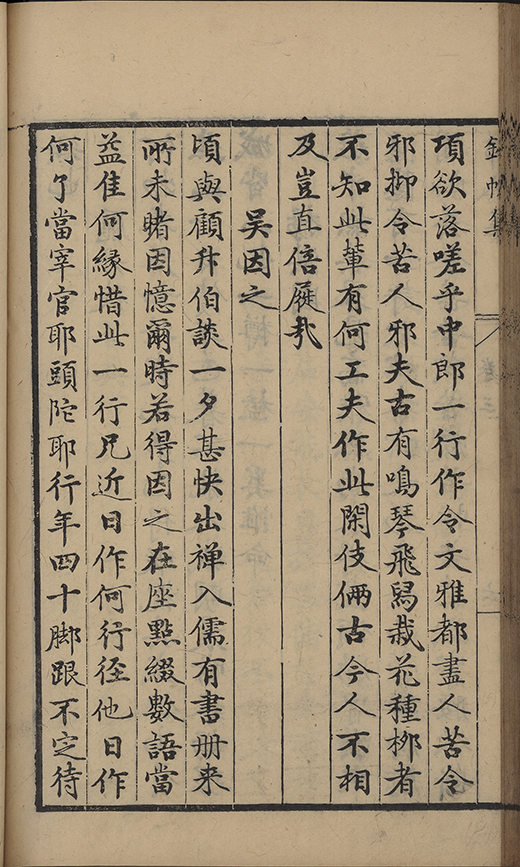 錦帆集
項欲落嗟乎中郎一行作令文雅都盡人苦令
邪抑令苦人邪夫古有鳴琴飛舄栽花種柳者
不知此輩有何工夫作此閑伎倆古今人不相
及豈直倍屣哉
吴因之
頃與顧升伯談一夕甚快出禅入儒有書册来
所未睹因憶爾時若得因之在座點綴數語當
益佳何緣惜此一行兄近日作何行徑他日作
何了當宰官耶頭陀耶行年四十脚跟不定待